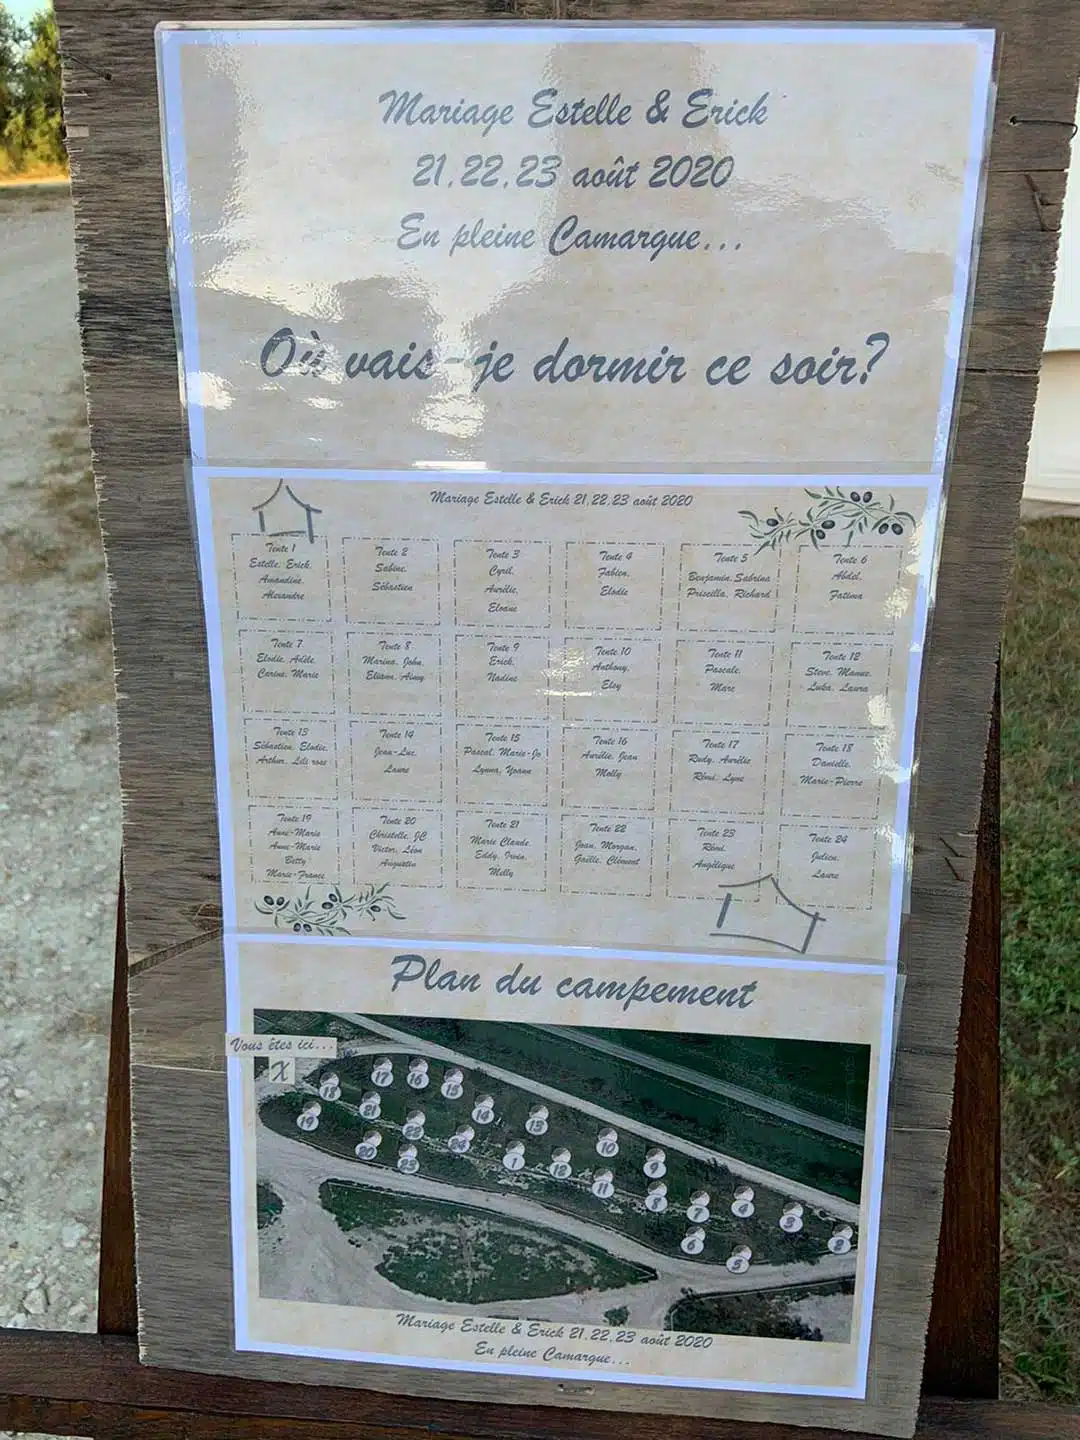 Mariage Estelle & Erick
21,22,23 août 2020
En pleine Camargue...
Où vais-je dormir ce soir?
Mariage Estelle & Erick 21,22,23 août 2020
Tente 1
Estelle, Erick,
Amandine,
Alexandre
Tente 2
Sabine,
Sébastien
Tente 3
Cyril,
Aurélie,
Eloane
Tente 4
Fabien,
Elodie
Tente 5
Benjamin, Sabrina
Priscilla, Richard
Tente 6
Abdel,
Fatima
Tente 7
Elodie, Adèle,
Carine, Marie
Tente 8
Marina, John,
Eliana, Aimy
Tente 9
Erick,
Nadine
Tente 10
Anthony,
Elsy
Tente 11
Pascale,
Marc
Tente 12
Steve, Manue,
Luka, Laura
Tente 13
Sébastien, Elodie,
Arthur, Lili rose
Tente 14
Jean-Luc,
Laure
Tente 15
Pascal, Marie-Jo
Lynna, Yoann
Tente 16
Aurélie, Jean
Molly
Tente 17
Rudy, Aurélie
Rémi, Lyne
Tente 18
Danielle,
Marie-Pierre
Tente 19
Anne-Marie
Anne-Marie
Betty
Marie-France
Tente 20
Christelle, JC
Victor, Léon
Augustin
Tente 21
Marie Claude,
Eddy, Irvin,
Milly
Tente 22
Joan, Morgan,
Gaëlle, Clément
Tente 23
Rémi,
Angélique
Tente 24
Julien,
Laure
Plan du campement
Vous êtes ici...
X
17 16 15
18 21 14
19 22 13
24 10
20 23 1 12 9
11 8
7 4 3
6 2
5
Mariage Estelle & Erick 21,22,23 août 2020
En pleine Camargue...